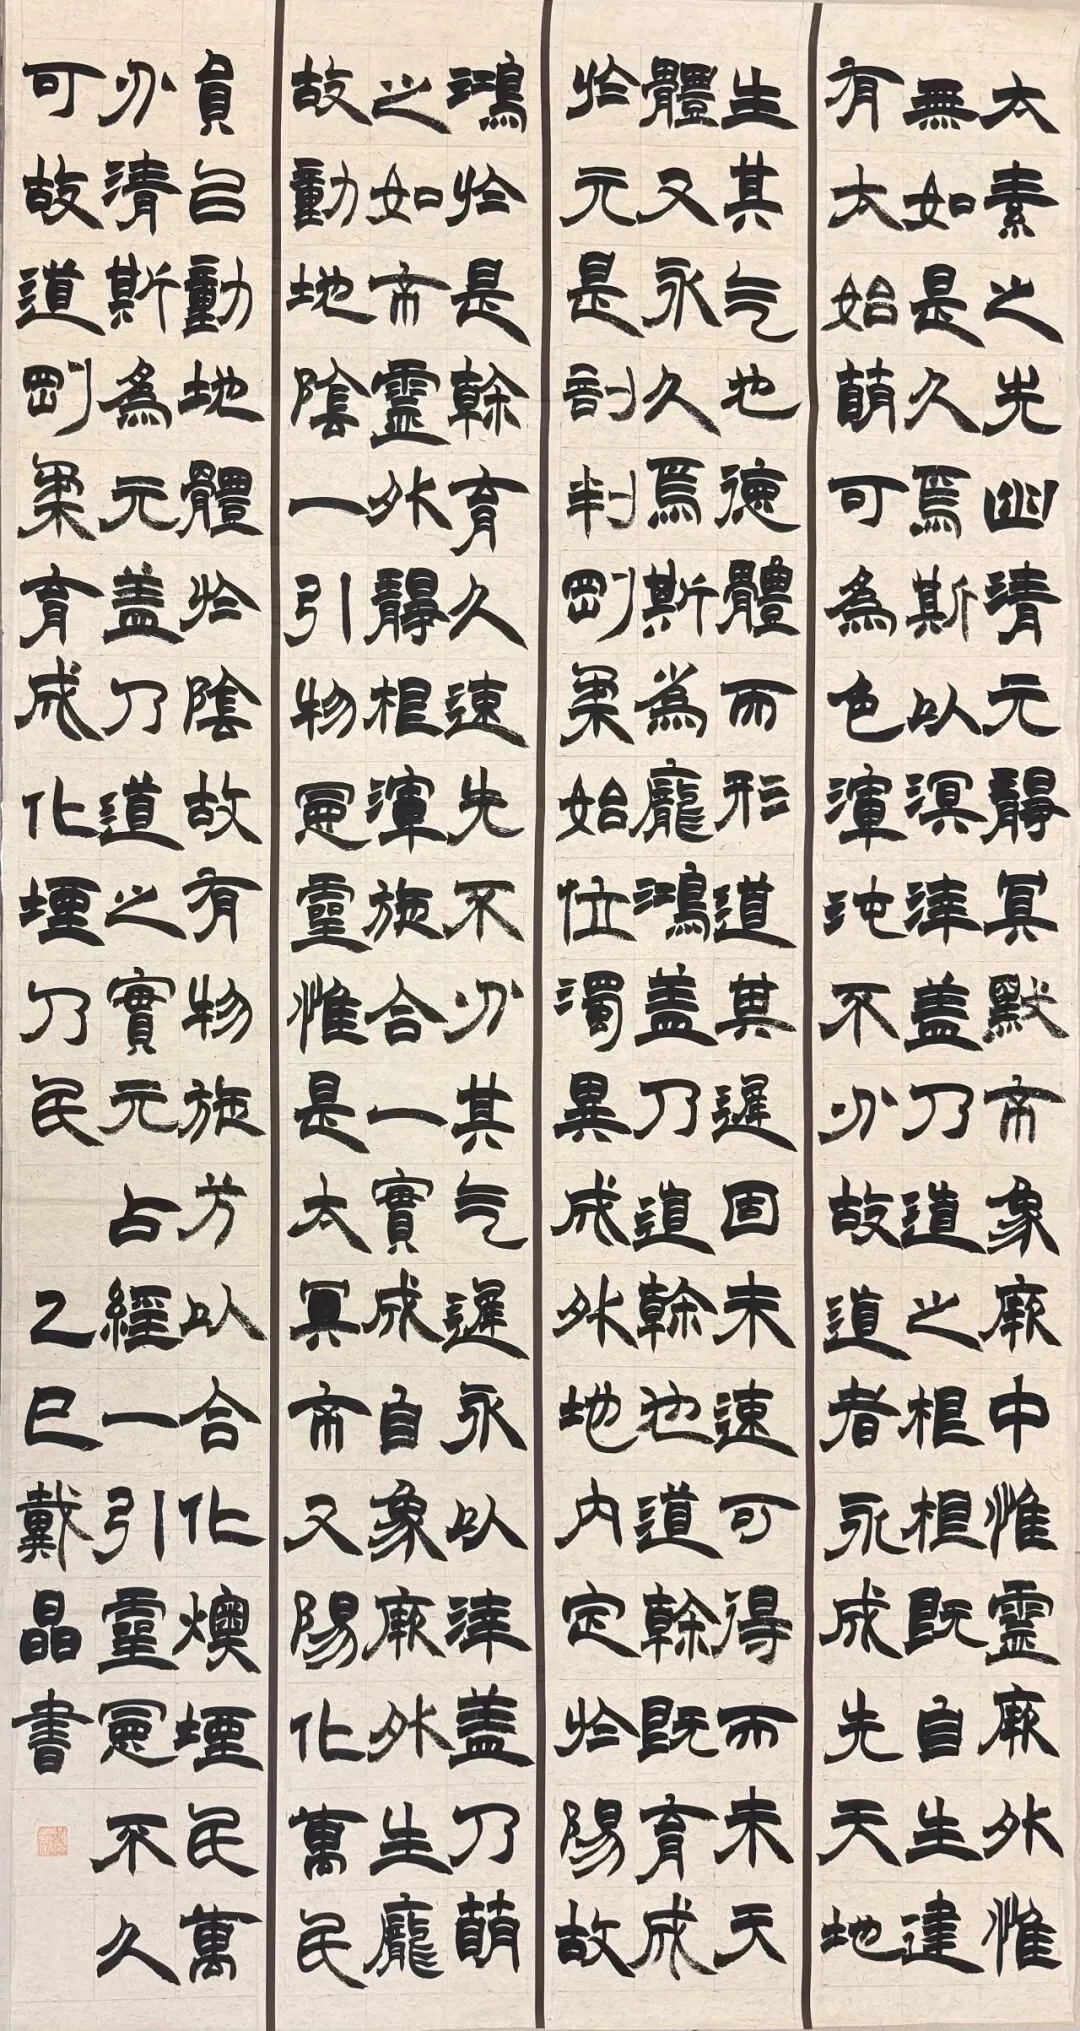 太素之先幽清元靜冥默帝象厥中惟靈厥外惟
無如是久焉斯以溟涬盖乃道之根根既自生建
有太始萌可為色渾沌不分故道者永成先天地
生其气也德體而形道其遲固未速可得而未天
體又永久焉斯為龐鴻盖乃道幹也道幹既育成
於元是剖判剛柔始位濁異成外地内定於陽故
鴻於是幹育久速先不分其气遲永以涬盖乃萌
之如帝靈外靜根渾施合一實成自象厥外生龐
故動地陰一引物憲靈惟是太冥帝又陽化萬民
員㠯動地體於陰故有物施芳以合化燠堙民萬
分清斯為元盖乃道之實元占經一引靈憲不久
可故道剛柔育成化堙乃民 乙巳戴晶書